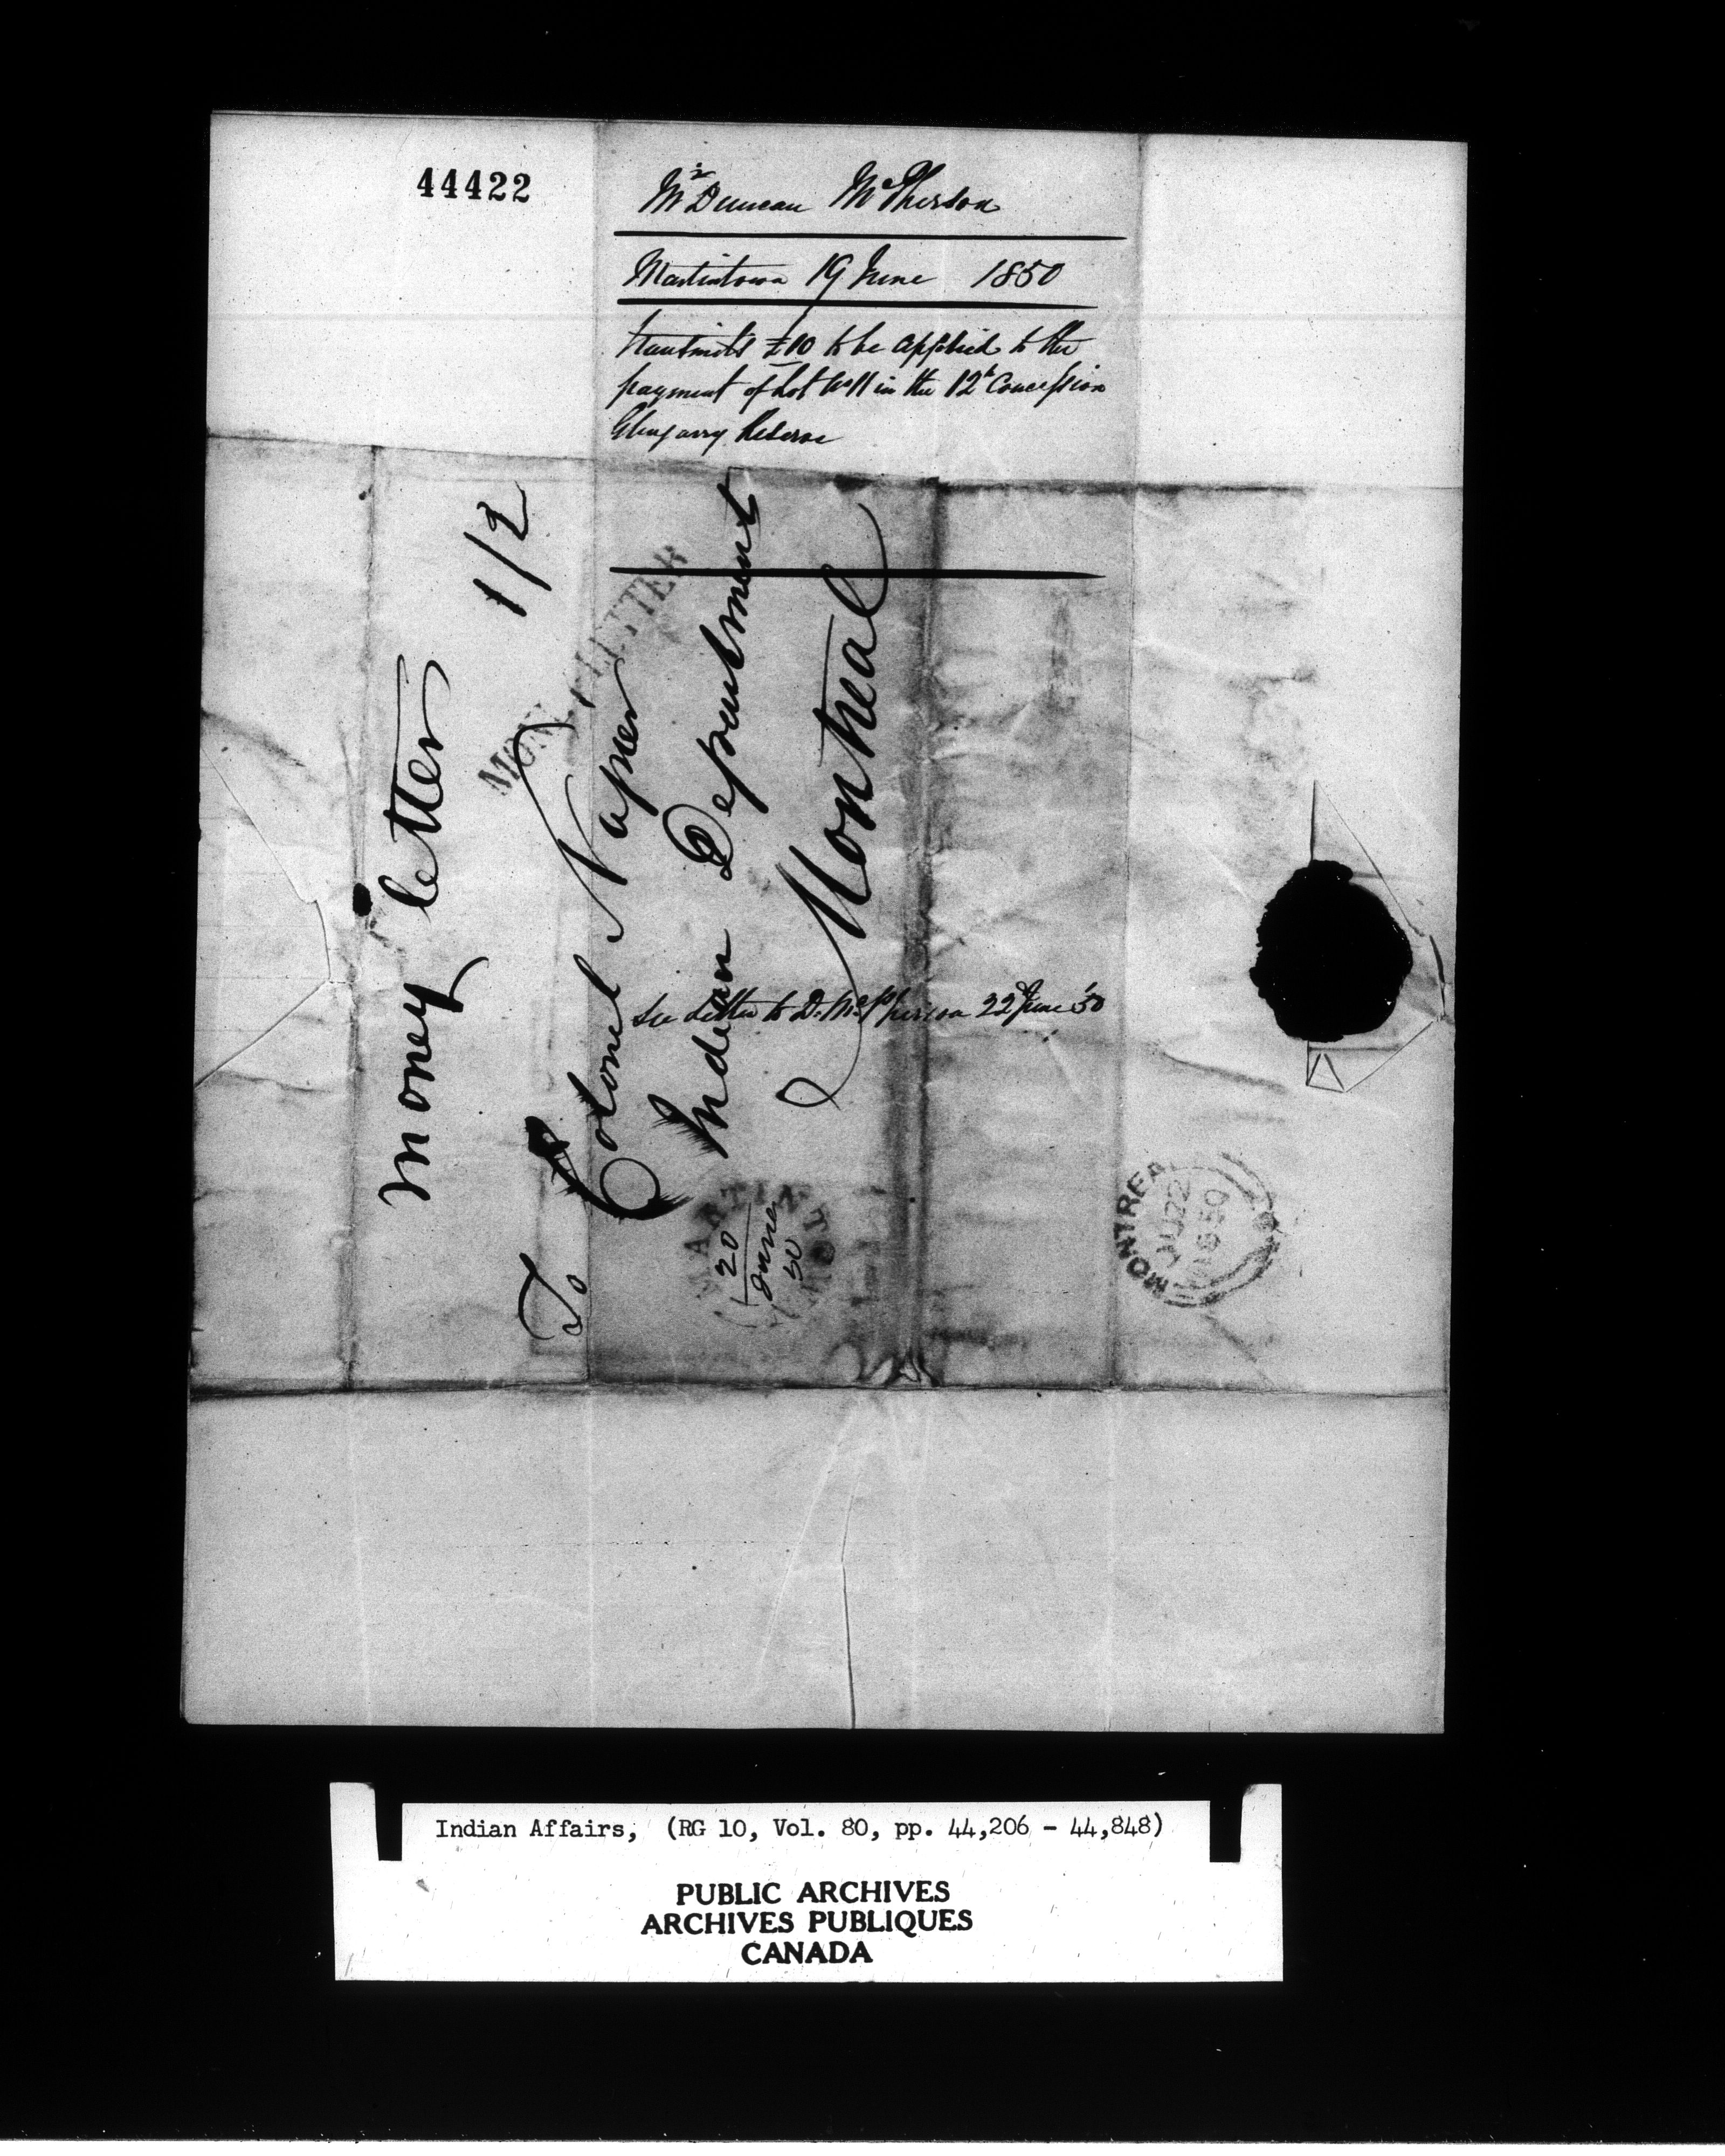 44422
Mr Duncan McPherson
Martintown 19 June 1850
transmits £10 to be applied to the
payment of Lot No 11 in the 12th Concession
Glengarry Reserve
money letter 1/2
MONEY LETTER
To Colonel Napier
Indian Department
Montreal
see letter to D. McPherson 22 June '50
MARTINTOWN
20
June
50
MONTREAL
JU 22
1850
Indian Affairs, (RG 10, Vol. 80, pp. 44,206 - 44,848)
PUBLIC ARCHIVES
ARCHIVES PUBLIQUES
CANADA